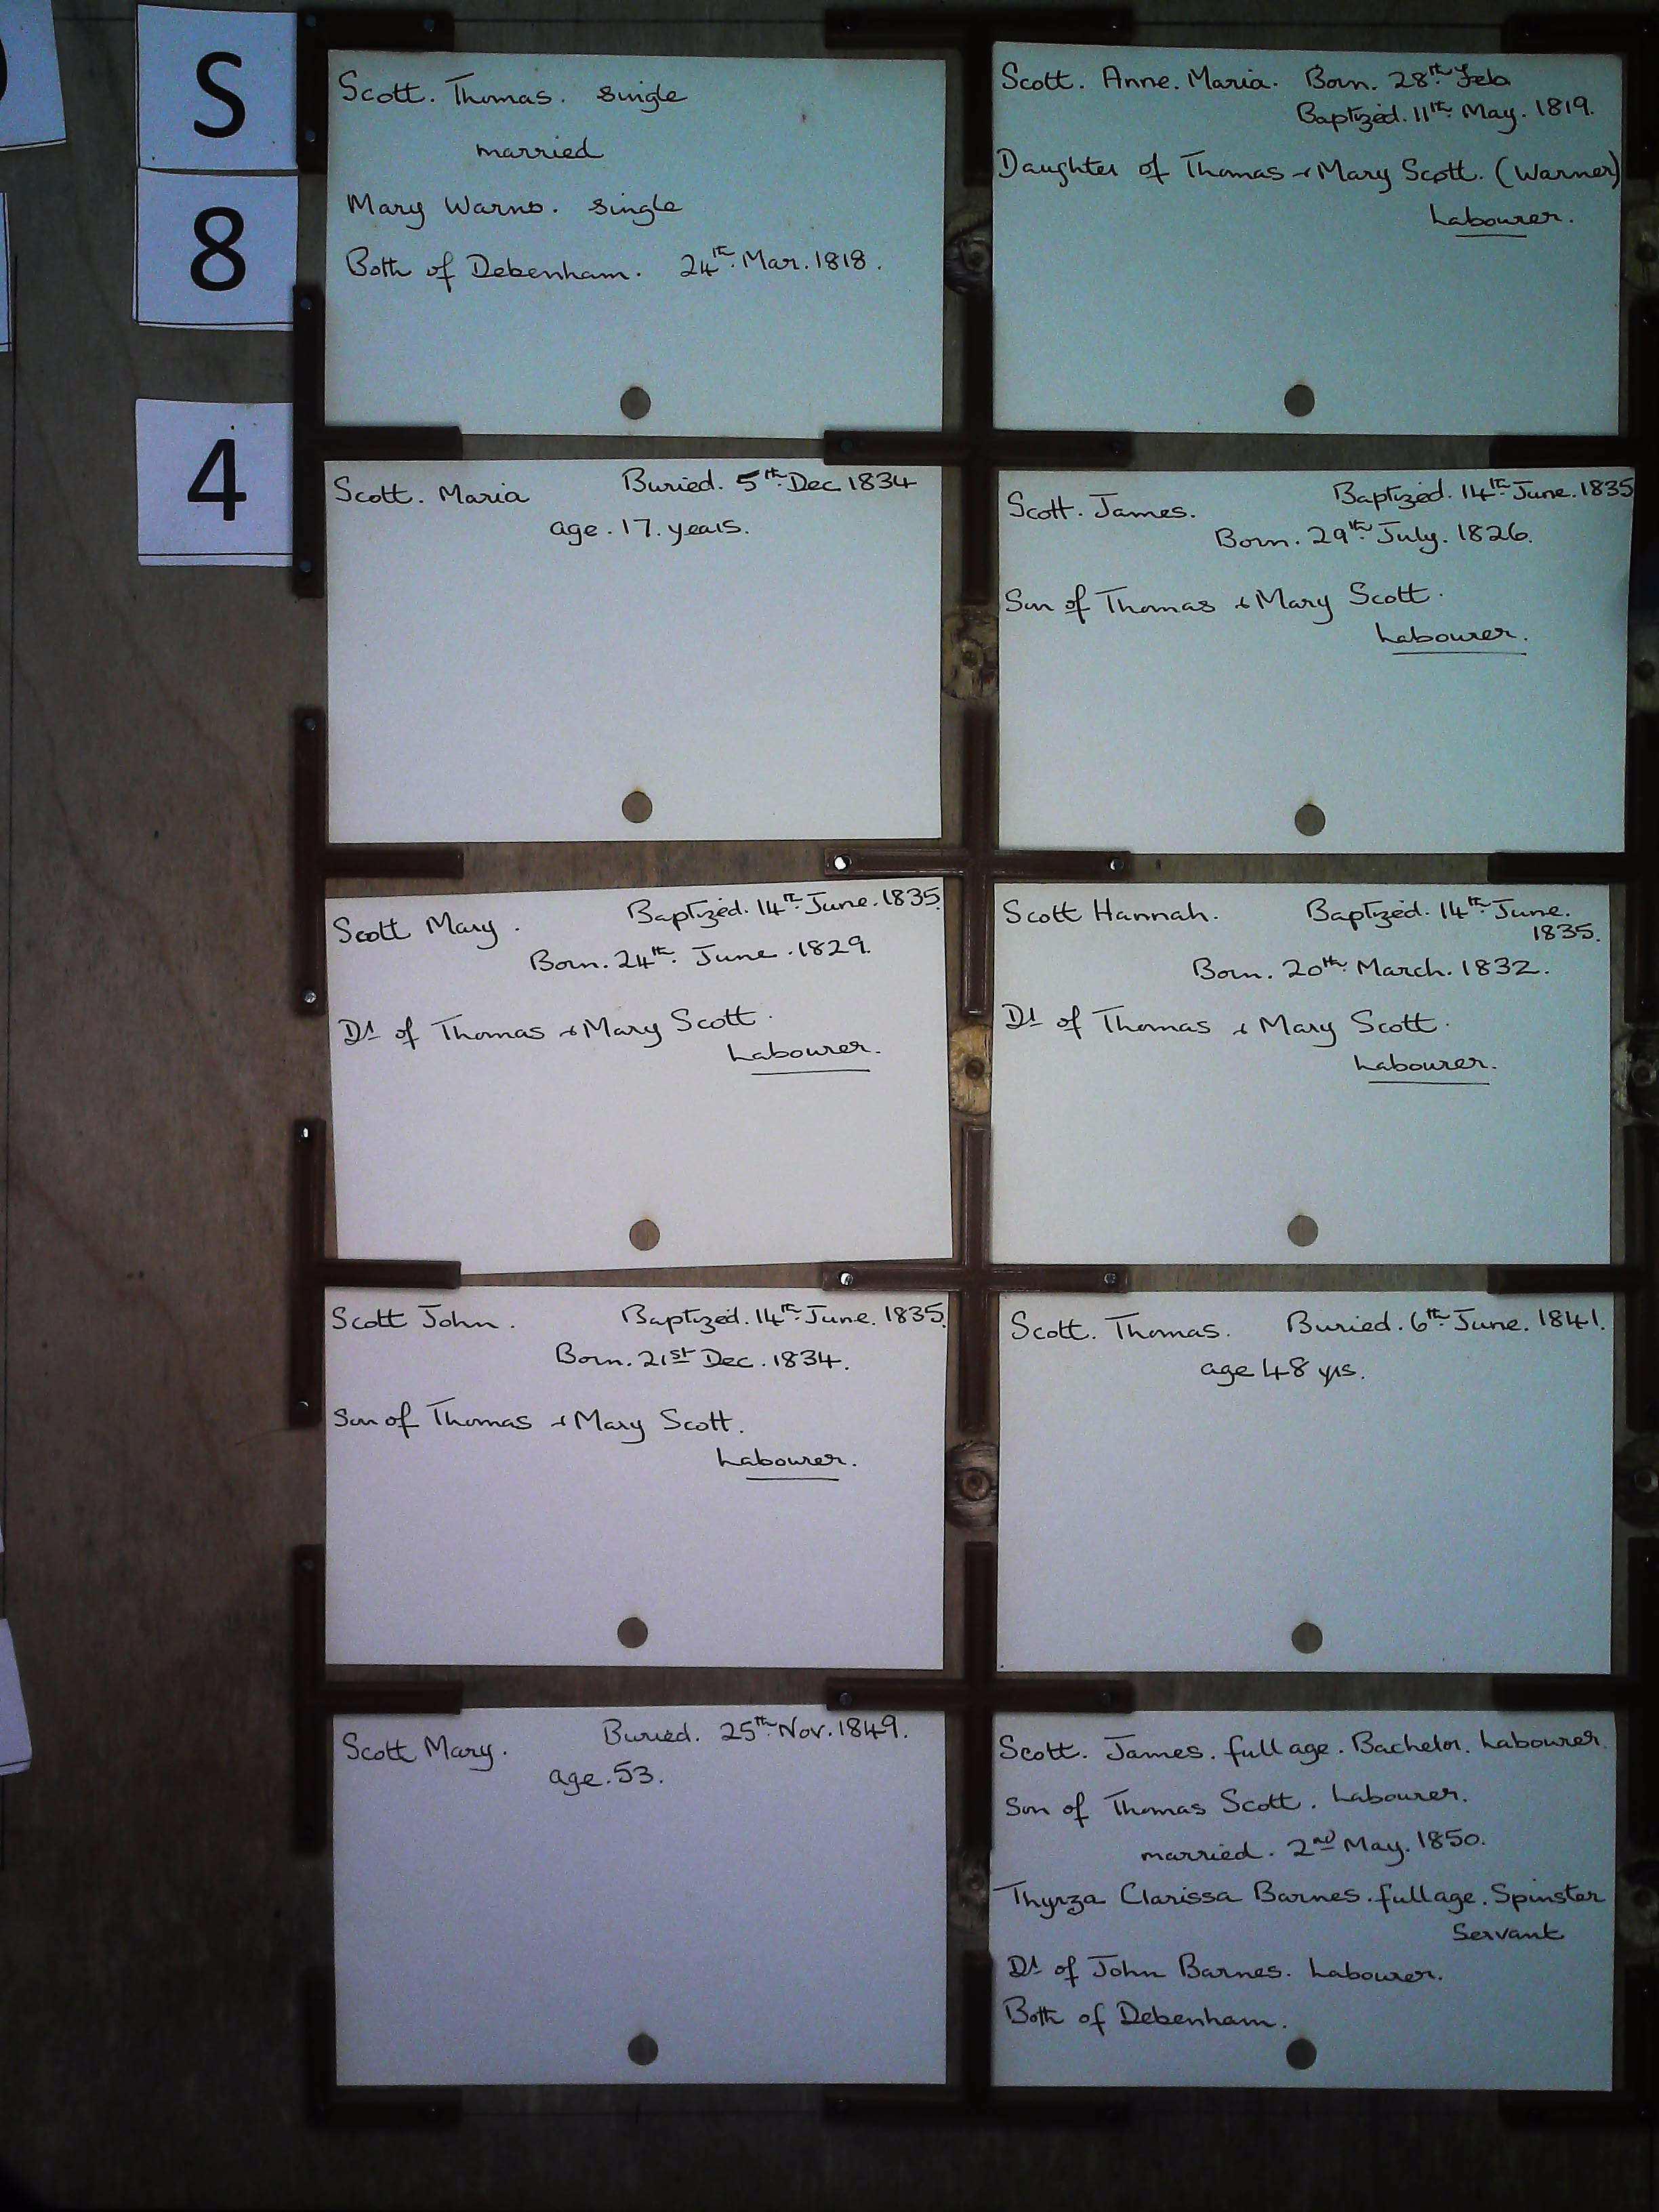 S
8
4
Scott. Thomas. single
married
Mary Warno. single
Both of Debenham. 24th. Mar. 1818.
Scott. Anne. Maria. Born. 28th. Feb
Baptized. 11th. May. 1819.
Daughter of Thomas + Mary Scott. (Warner)
Labourer.
Scott. Maria Buried. 5th. Dec 1834
age. 17. years.
Scott. James. Baptized. 14th. June. 1835
Born. 29th. July. 1826.
Son of Thomas & Mary Scott.
Labourer.
Scott Mary. Baptized. 14th. June. 1835.
Born. 24th. June. 1829.
Dt of Thomas & Mary Scott.
Labourer.
Scott Hannah. Baptized. 14th. June.
1835.
Born. 20th. March. 1832.
Dt of Thomas & Mary Scott.
Labourer.
Scott John. Baptized. 14th. June. 1835.
Born. 21st Dec. 1834.
Son of Thomas + Mary Scott.
Labourer.
Scott. Thomas. Buried. 6th. June. 1841.
age 48 yrs.
Scott Mary. Buried. 25th. Nov. 1849.
age. 53.
Scott. James. full age. Bachelor. Labourer.
Son of Thomas Scott. Labourer.
married. 2nd May. 1850.
Thyrza Clarissa Barnes. full age. Spinster
Servant
Dt of John Barnes. Labourer.
Both of Debenham.